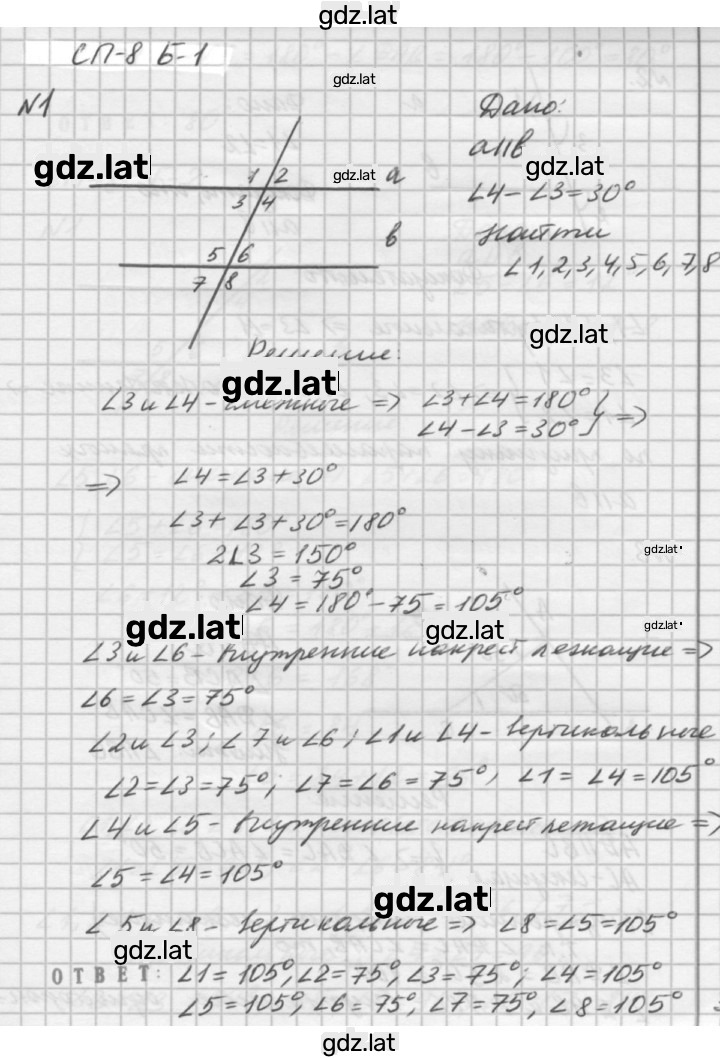 gdz.lat
СП-8 Б-1
gdz.lat
№1
Дано:
gdz.lat
1 2
gdz.lat
a
a||в
gdz.lat
3 4
∠4-∠3=30°
в
Найти
5 6
∠1,2,3,4,5,6,7,8
7 8
gdz.lat
Решение:
gdz.lat
∠3 и ∠4 - смежные => ∠3+∠4=180°
∠4-∠3=30° } =>
=> ∠4=∠3+30°
∠3+∠3+30°=180°
2∠3=150°
gdz.lat
∠3=75°
∠4=180°-75=105°
gdz.lat
gdz.lat
gdz.lat
∠3 и ∠6 - Внутренние накрест лежащие =>
∠6=∠3=75°
∠2 и ∠3; ∠7 и ∠6; ∠1 и ∠4 - Вертикальные
∠2=∠3=75°; ∠7=∠6=75°; ∠1=∠4=105°
∠4 и ∠5 - Внутренние накрест лежащие =>
∠5=∠4=105°
gdz.lat
∠5 и ∠8 - Вертикальные => ∠8=∠5=105°
gdz.lat
ОТВЕТ: ∠1=105°, ∠2=75°, ∠3=75°; ∠4=105°
∠5=105°, ∠6=75°, ∠7=75°, ∠8=105°
gdz.lat